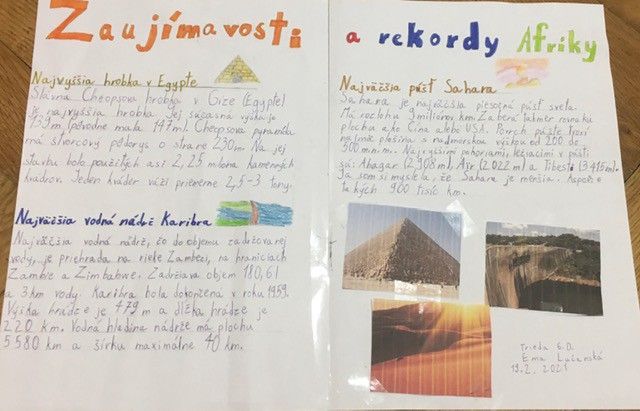 Zaujímavosti a rekordy Afriky
Najvyššia hrobka v Egypte
Slávna Cheopsova hrobka v Gíze (Egypte)
je najvyššia hrobka. Jej súčasná výška je
139 m (pôvodne mala 147 m). Cheopsova pyramída
má štvorcový pôdorys o strane 230 m. Na jej
stavbu bolo použitých asi 2,25 milióna kamenných
kvádrov. Jeden kváder váži priemerne 2,5-3 tony.
Najväčšia vodná nádrž Karibra
Najväčšia vodná nádrž, čo do objemu zadržovanej
vody, je priehrada na rieke Zambezi, na hraniciach
Zambie a Zimbabwe. Zadržiava objem 180,6 l
a 3 km vody. Karibra bola dokončená v roku 1959.
Výška hrádze je 479 m a dĺžka hrádze je
220 km. Vodná hladina nádrže má plochu
5 580 km a šírku maximálne 40 km.
Najväčšia púšť Sahara
Sahara je najväčšia piesočná púšť sveta.
Má rozlohu 9 miliónov km. Zaberá takmer rovnakú
plochu ako Čína alebo USA. Povrch púšte tvorí
náhorná plošina s nadmorskou výškou od 200 do
500 m n. m. Najvyššími pohoriami, ležiacimi v púšti
sú: Ahagar (2 908 m), Ajr (2 022 m) a Tibesti (3 415 m).
Ja som si myslela, že Sahara je menšia. Aspoň o
takých 900 tisíc km.
Trieda 6.D.
Ema Lučanská
19.2. 2021